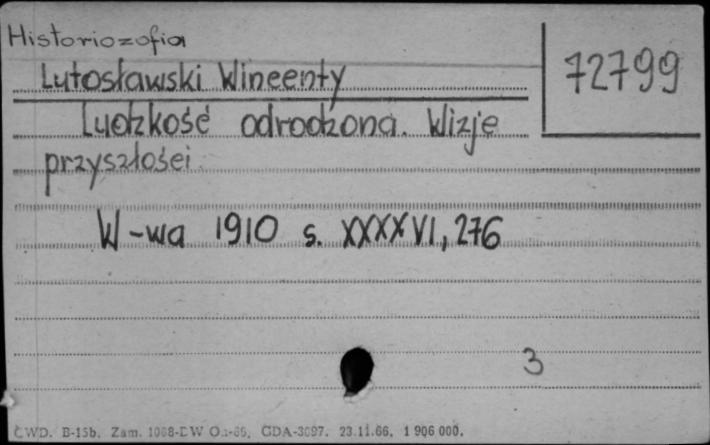 Historiozofia
72799
Lutosławski Wincenty
Ludzkość odrodzona. Wizje
przyszłości
W-wa 1910 s. XXXXVI, 276
3
CWD. B-15b. Zam. GDA-3097. 23.11.66. 1 906 000.